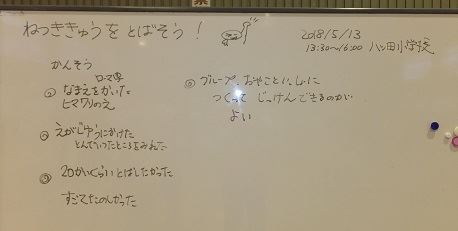 ねっききゅうをとばそう！
2018/5/13
13:30~16:00 八ッ田小学校
かんそう
ローマ字
① なまえをかいた
ヒマワリのえ
② えがじゆうにかけた
とんでいったところをみれた
③ 20かいくらいとばしたかった
すごくたのしかった
④ グループ、おやこといっしょに
つくって じっけんできるのが
よい